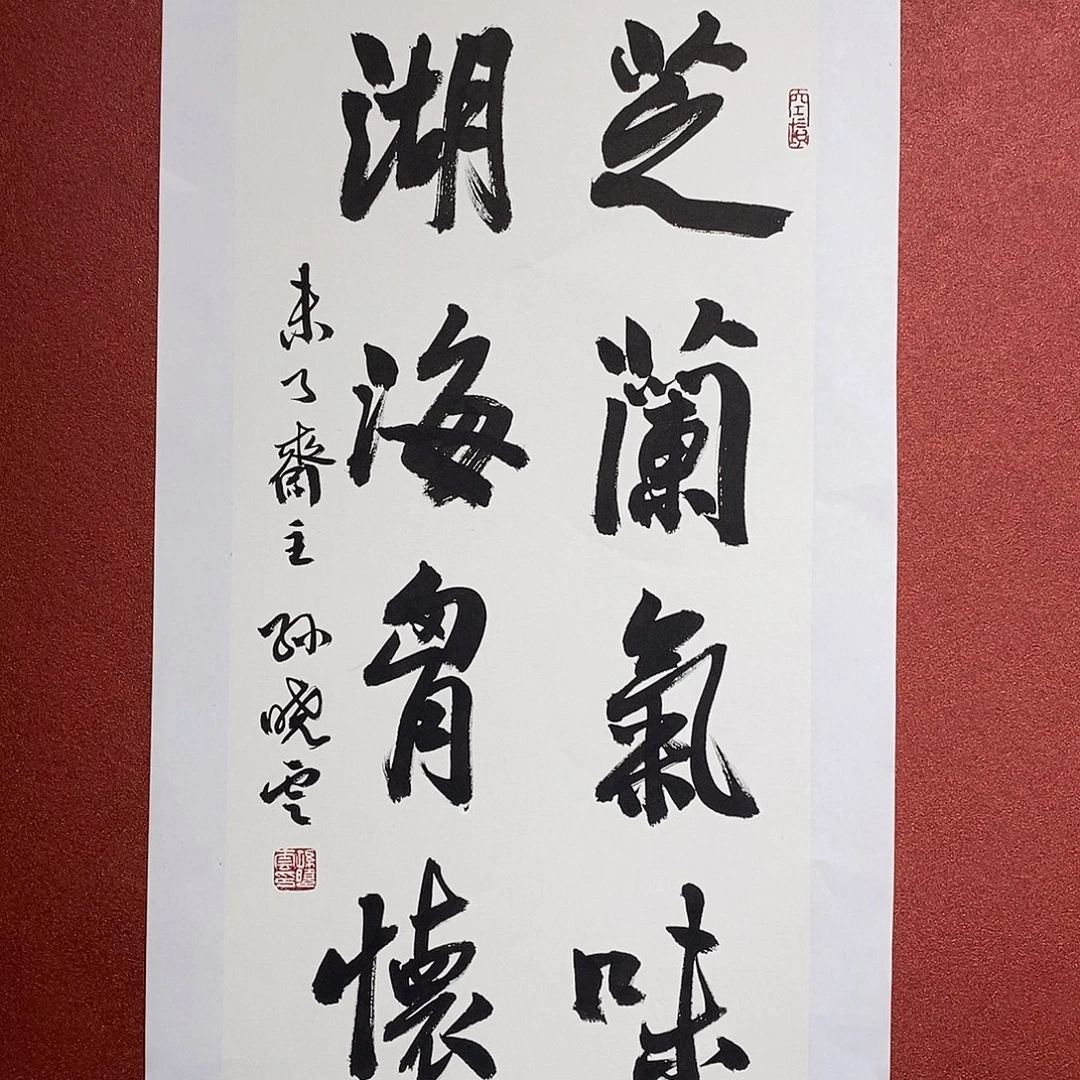 芝蘭氣味
湖海胷懷
未了齋主孙晓雲